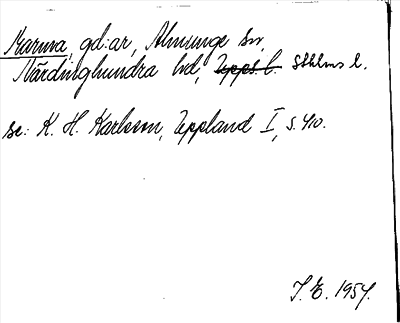 Marma, gd:ar, Almunge sn,
Närdinghundra hd, Upps. l. Sthlms l.
se: K. H. Karlsson, Uppland I, s. 410.
I. E. 1954.